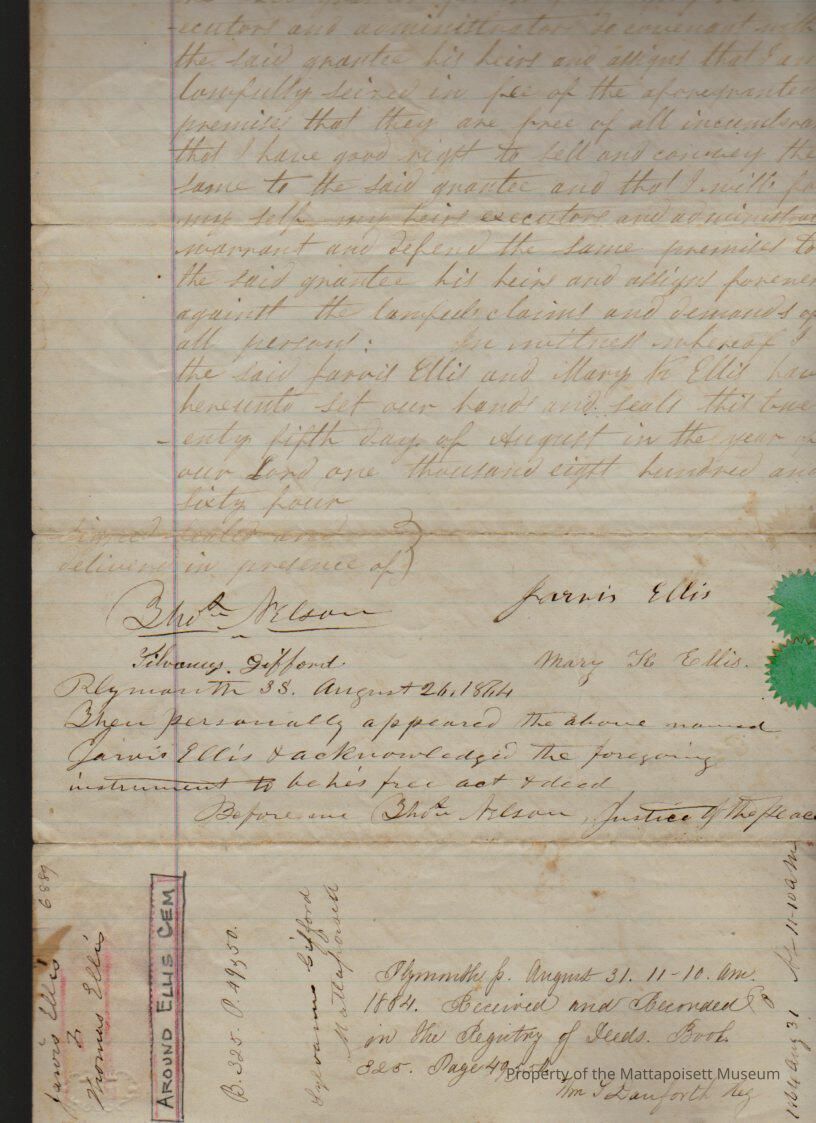 -ecutors and administrators do covenant with
the said grantee his heirs and assigns that I am
lawfully seized in fee of the aforegranted
premises that they are free of all incumbran
that I have good right to sell and convey the
same to the said grantee and that I will for
my self my heirs executors and administrat
warrant and defend the same premises to
the said grantee his heirs and assigns forever
against the lawful claims and demands of
all persons: In witness whereof I
the said Jarvis Ellis and Mary K Ellis have
hereunto set our hands and seals this twe
-enty fifth day of August in the year of
our Lord one thousand eight hundred and
sixty four
Signed sealed and
delivered in presence of }
Thos. Nelson
Jarvis Ellis
Silvanus. Gifford
Mary K Ellis.
Plymouth SS. August 26, 1864
Then personally appeared the above named
Jarvis Ellis & acknowledged the foregoing
instrument to be his free act & deed
Before me Thos. Nelson, Justice of the peac
6889
Jarvis Ellis
2
Thomas Ellis
AROUND ELLIS CEM
B. 325. P. 49, 50.
Sylvanus Gifford
Mattapoisett
Plymouth ss. August 31. 11-10. am.
1864. Received and Recorded
in the Registry of Deeds. Book
325. Page 49,
Wm S Danforth Reg
1864 Aug 31 11-10 am
Property of the Mattapoisett Museum